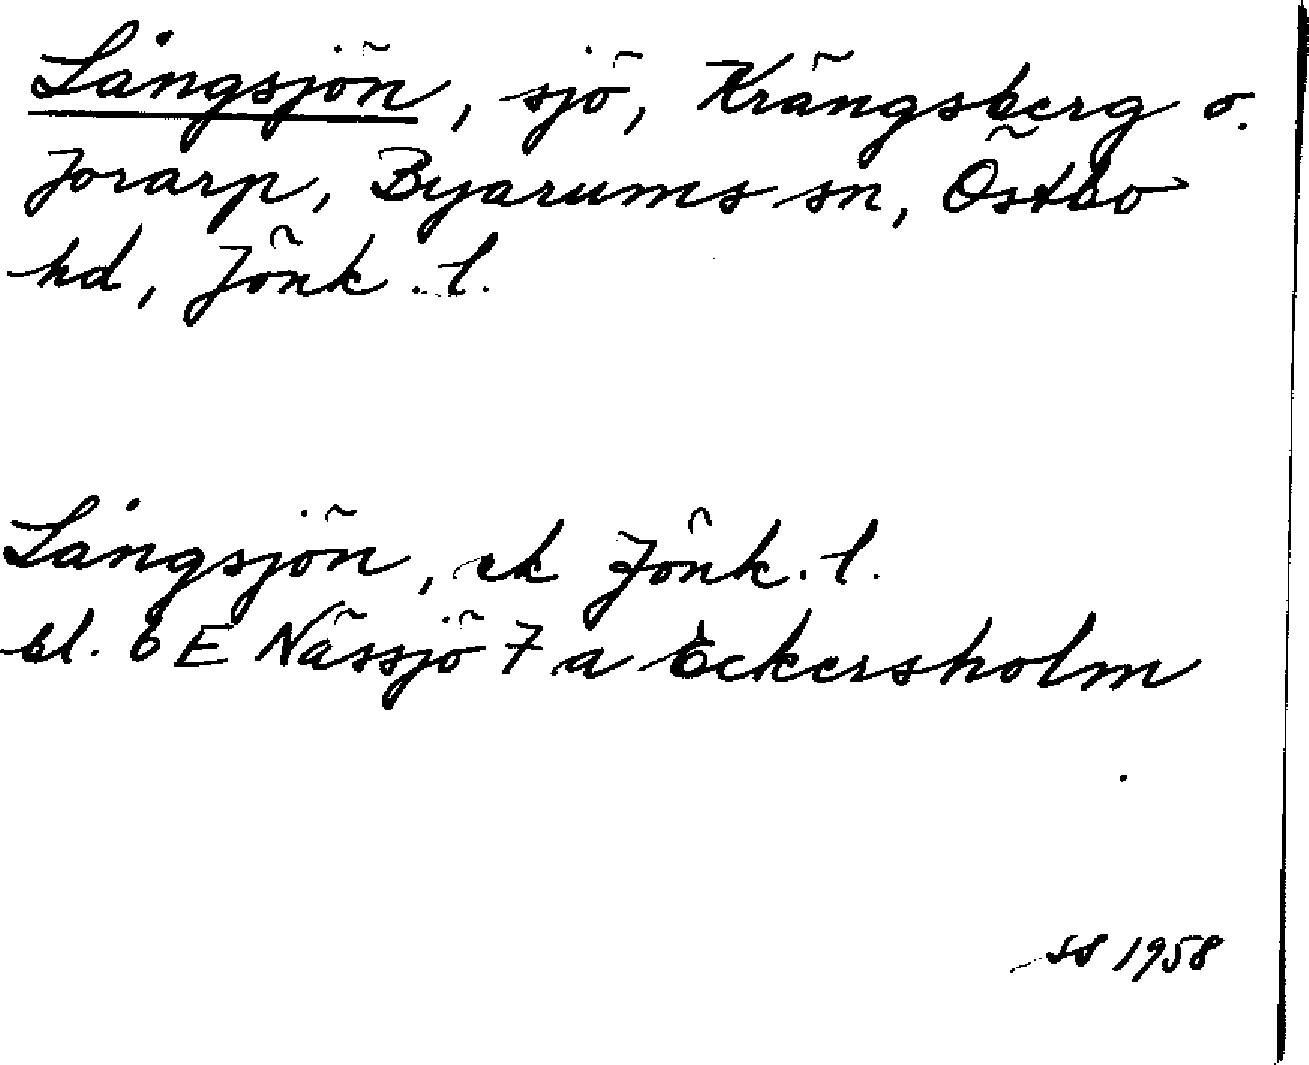 Långsjön, sjö, Krängsberg o.
Jorarp, Byarums sn, Östbo
hd, Jönk. l.
Långsjön, ek Jönk. l.
bl. 6 E Nässjö 7 a Eckersholm
SS 1958